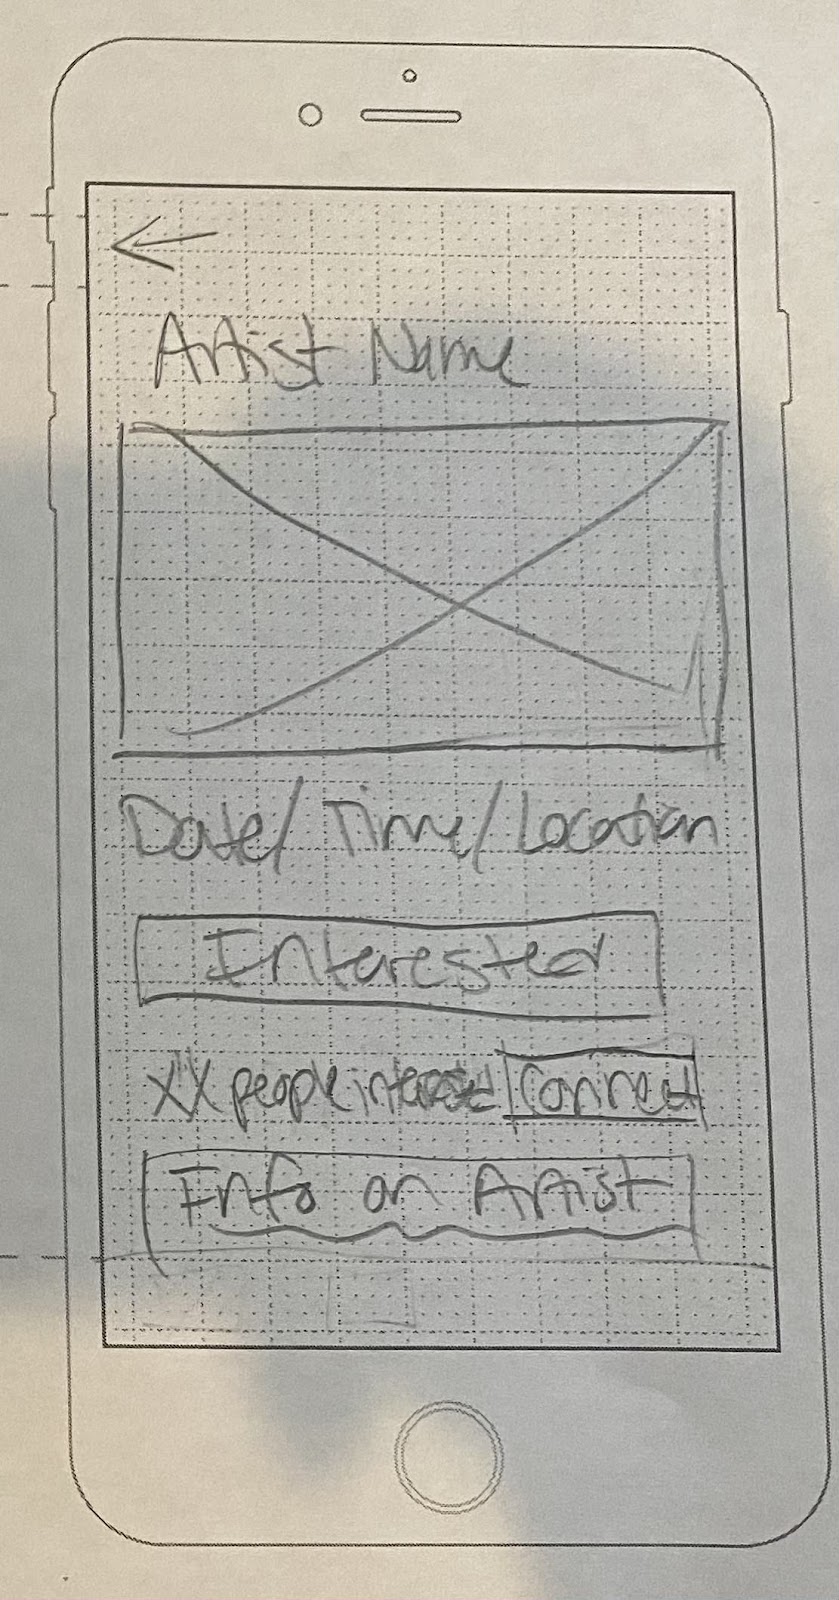 Artist Name
Date/ Time/ Location
Interested
XX people interested Connect
Info on Artist